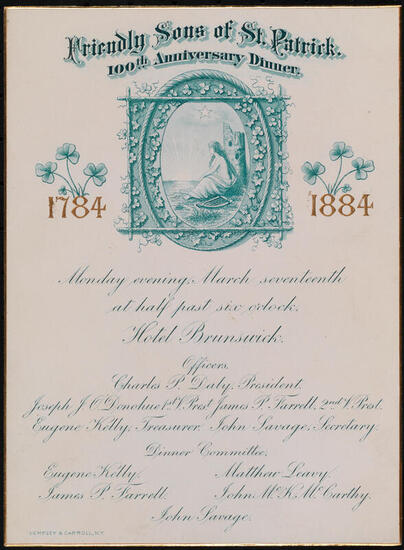 Friendly Sons of St. Patrick.
100th Anniversary Dinner.
1784
1884
Monday evening, March seventeenth
at half past six o'clock,
Hotel Brunswick.
Officers,
Charles P. Daly, President,
Joseph J. O'Donohue 1st V. Prest. James P. Farrell, 2nd V. Prest.
Eugene Kelly, Treasurer John Savage, Secretary.
Dinner Committee,
Eugene Kelly, Matthew Leavy,
James P. Farrell, John Mc.K. McCarthy,
John Savage.
DEMPSEY & CARROLL, N.Y.